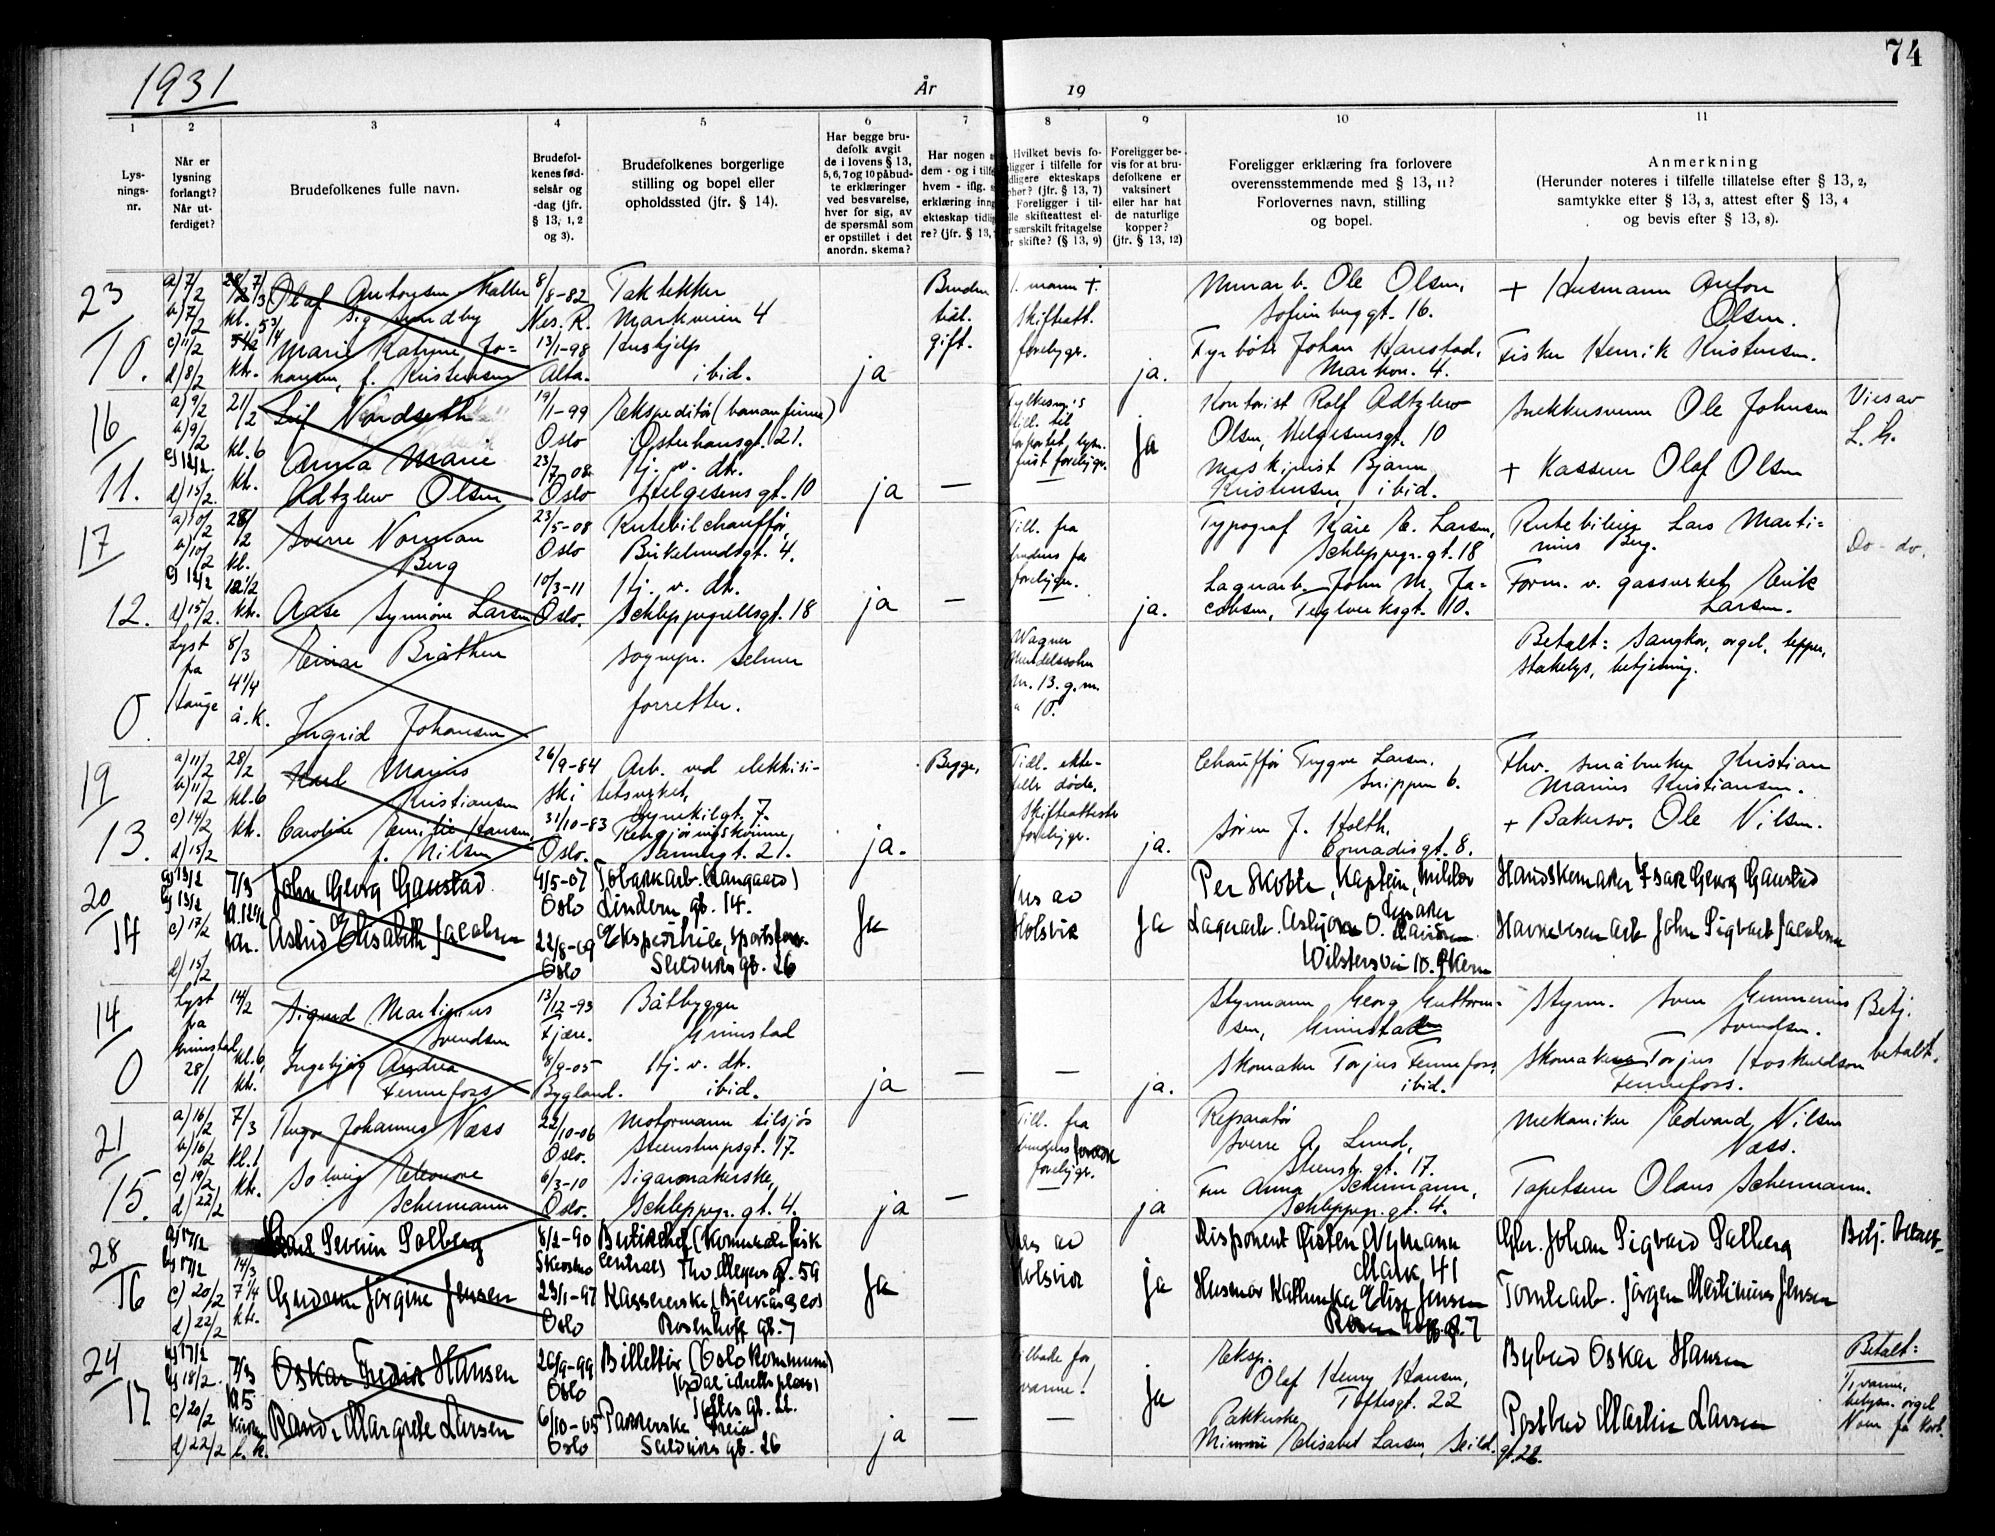 74
1931
År
19
1
2
3
4
5
6
7
8
9
10
11
Lys-
nings-
nr.
Når er
lysning
forlangt?
Når ut-
ferdiget?
Brudefolkenes fulle navn.
Brudefol-
kenes fød-
selsår og
-dag (jfr.
§ 13, 1, 2
og 3).
Brudefolkenes borgerlige
stilling og bopel eller
opholdssted (jfr. § 14).
Har begge bru-
defolk avgit
de i lovens § 13,
5, 6, 7 og 10 påbud-
te erklæringer
ved besvarelse,
hver for sig, av
de spørsmål som
er opstillet i det
anordn. skema?
Har nogen
dem - og i
hvem - iflg.
erklæring
ekteskap
re? (jfr. § 13,
Hvilket bevis fo-
religger i tilfelle for
tidligere ekteskaps
ophør? (jfr. § 13, 7)
Foreligger i til-
felle skifteattest el-
ler særskilt fritagelse
for skifte? (§ 13, 9)
Foreligger be-
vis for at bru-
defolkene er
vaksinert
eller har hat
de naturlige
kopper?
(jfr. § 13, 12)
Foreligger erklæring fra forlovere
overensstemmende med § 13, 11?
Forlovernes navn, stilling
og bopel.
Anmerkning
(Herunder noteres i tilfelle tillatelse efter § 13, 2,
samtykke efter § 13, 3, attest efter § 13, 4
og bevis efter § 13, 8).
23
10.
a) 7/2
b) 7/2
c) 11/2
d) 8/2
kl.
kk.
Olaf Antonsen
Marie Katrine Jo-
hansen, f. Kristensen
8/8-82
Nes. R.
13/1-98
Alta.
Taktekker
Markveien 4
Hushjelp
ibid.
ja
Bruden
tidl.
gift.
1. mann +.
Skifteatt.
foreligger.
ja.
Murarb. Ole Olsen,
Sofienberggt. 16.
Fyrbøter Johan Hanestad,
Markvn. 4.
+ Husmann Anton
Olsen.
Fisker Henrik Kristensen.
16
11.
a) 9/2
b) 9/2
c) 12/2.
d) 15/2.
21/2
kl. 6
kk.
Leif Nordseth
Anna Marie
Adtzlew Olsen
19/1-99
Oslo
23/7-08
Oslo
Ekspeditør (
Osterhausgt. 21.
Hj. v. do.
Helgesensgt. 10
ja
—
ja
Kontorist Rolf Adtzlew
Olsen, Helgesensgt. 10
Maskinist Bjarne
Kristensen, ibid.
Snekkersvenn Ole Johnsen
+ Kasserer Olaf Olsen
Vies av
L. H.
17
12.
a) 10/2
b) 10/2
c) 12/2
d) 15/2.
28/2
kl.
kk.
Sverre Norman
Berg
Aase Synnöve Larsen
23/5-08
Oslo
10/3-11
Oslo.
Rutebilchauffør,
Birkelundsgt. 4.
Hj. v. do.
Schleppegrellsgt. 18
ja
—
Till. fra
brudens far
foreligger.
ja.
Typograf Kåre E. Larsen,
Schleppegr. gt. 18
Lagerarb. John M. Ja-
cobsen, Teglverksgt. 10.
Rutebileier Lars Marti-
nius Berg.
Form. v. gassverket Erik
Larsen.
Do - do.
0.
Lyst
fra
8/3
4 1/4
å. K.
Einar Bråthen
Ingrid Johansen
Sognepr. Selmer
forretter.
Wagner
Mendelssohn
nr. 13. g. m.
" 10.
Betalt: Sangkor, orgel, tepper,
stakelys, betjening.
19
13.
a) 11/2
b) 11/2
c) 14/2
d) 15/2
28/2
kl. 6
kk.
Karl Marius
Kristiansen
Caroline Emilie Hansen,
f. Nilsen
26/9-84
Ski
31/10-83
Oslo.
Arb. ved elektrisi-
tetsverket,
Dynekilgt. 7.
Rengjøringskvinne,
Sannergt. 21.
ja.
Begge,
Tidl. ekte-
feller døde,
Skifteattester
foreligger.
ja.
Chauffør Trygve Larsen,
Snippen 6.
Søren J. Holth,
Conradisgt. 8.
Fhv. småbruker Kristian
Marius Kristiansen.
+ Bakersv. Ole Nilsen.
20
14
a) 13/2
b) 13/2
c) 17/2
d) 15/2
7/3
kk.
John Georg Gaustad
Astrid Elisabeth Jacobsen
4/5-07
Oslo
22/8-09
Oslo
Tobakkarb. (Langaard)
Lindern gt. 14.
Ekspeditrise, sportsforr.
Seilduks gt. 26
Ja
Vies av
Holsvik
Ja
Per Skotte, Kaptein, Militær
Lagerarb. Asbjørn O. Davidsen
Wilsters vei 10. Økern
Handskemaker Isak Georg Gaustad
Havnevesen arb John Sigvart Jacobsen
14
0
Lyst
fra
Grimstad
28/1
14/2
kl. 6
kk.
Sigurd Martinius
Svendsen
Ingebjørg Andrea
Fennefoss
13/12-93
Fjære.
8/9-05
Bygland.
Båtbygger
Grimstad
Hj. v. do.
ibid.
ja
—
—
ja.
Styrmann Georg Guttorm-
sen, Grimstad
Skomaker Torjus Fennefoss
ibid.
Styrm. Sven Gunnerius
Svendsen.
Skomaker Torjus Hoskuldson
Fennefoss.
Betj.
betalt.
21
15.
a) 16/2
b) 16/2
c) 19/2
d) 22/2
7/3
kl. 1
kk.
Hugo Johannes Næss
Solveig Eleonore
Schermann
22/10-06
Oslo.
6/3-10
Oslo.
Motormann tilsjøs
Steenstrupsgt. 17.
Sigarmakerske,
Schleppegr. gt. 4.
ja
—
Till. fra
brudens
foreligger.
ja
Reparatør
Sverre A. Lund,
Steenstr. gt. 17.
Fru Anna Schermann,
Schleppegr. gt. 4.
Mekaniker Edvard Nilsen
Næss.
Tapetserer Olaus Schermann.
28
16
a) 17/2
b) 17/2
c) 20/2
d) 22/2
14/3
7 1/4
kk.
Karl Severin Solberg
Gudrun Jørgine Jensen
8/2-90
23/1-97
Oslo
Butikkchef (Kommunale fisk
central) Thv. Meyers gt. 59
Kassererske (Bjerkås Geo)
Rosenhoff gt. 7
Ja
Vies av
Holsvik
ja
Disponent Øisten Nymann
Mark 41
Husmor Kathinka Elise Jensen
Rosenhoff gt. 7
Gbr. Johan Sigvard Solberg
Tomtearb. Jörgen Martinius Jensen
Betj. betalt
24
17
a) 17/2
b) 18/2.
c) 20/2
d) 22/2
7/3
kl 5
Oskar Fredrik Hansen
Randi Margrete Larsen
26/9-99
Oslo
6/10-05
Oslo
Billettør (Oslo Kommune)
Toftes gt. 22.
Pakkerske Freia
Seilduks gt. 26
ja
—
—
ja
Eksp.
Olaf Henry Hansen,
Toftesgt. 22
Pakkerske
Mimmi Elisabet Larsen, Seild. gt. 26.
Bybud Oskar Hansen
Postbud Martin Larsen
Betalt:
1/1 varme,
belysn. orgel